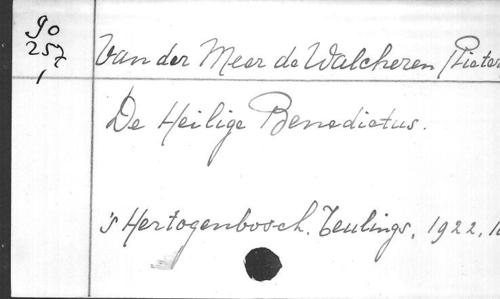 90
257
1
Van der Meer de Walcheren Pieter
De Heilige Benedictus.
's Hertogenbosch. Teulings, 1922,